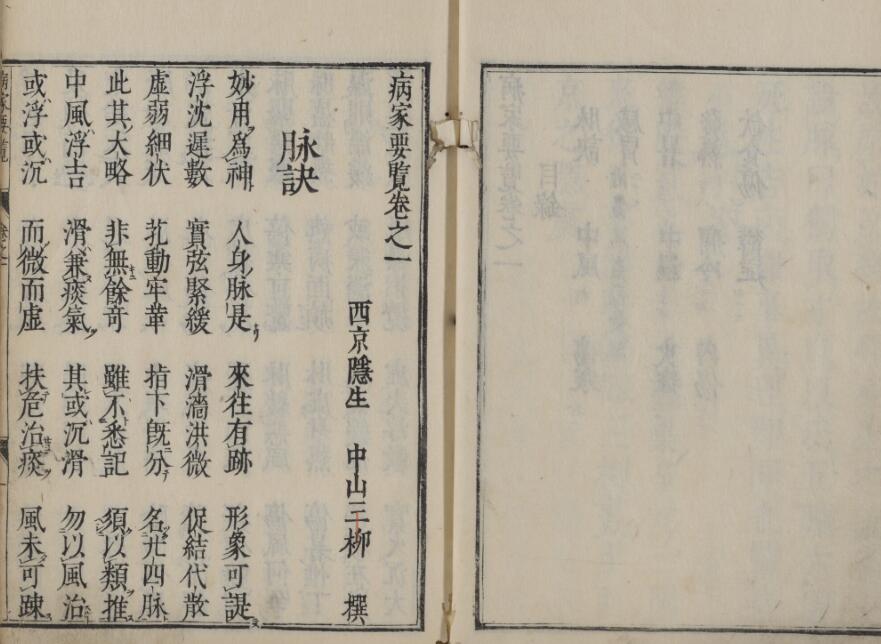 病家要覽卷之一
西京隱生 中山三柳 撰
脉訣
妙用爲神 人身脉是 來往有跡 形象可諟
浮沈遲數 實弦緊緩 滑濇洪微 促結代散
虛弱細伏 芤動牢革 指下既分 名茫四脉
此其大略 非無餘奇 雖不悉記 須以類推
中風浮吉 滑兼痰氣 其或沉滑 勿以風治
或浮或沉 而微而虛 扶危治痰 風未可踈
病家要覽 卷之一